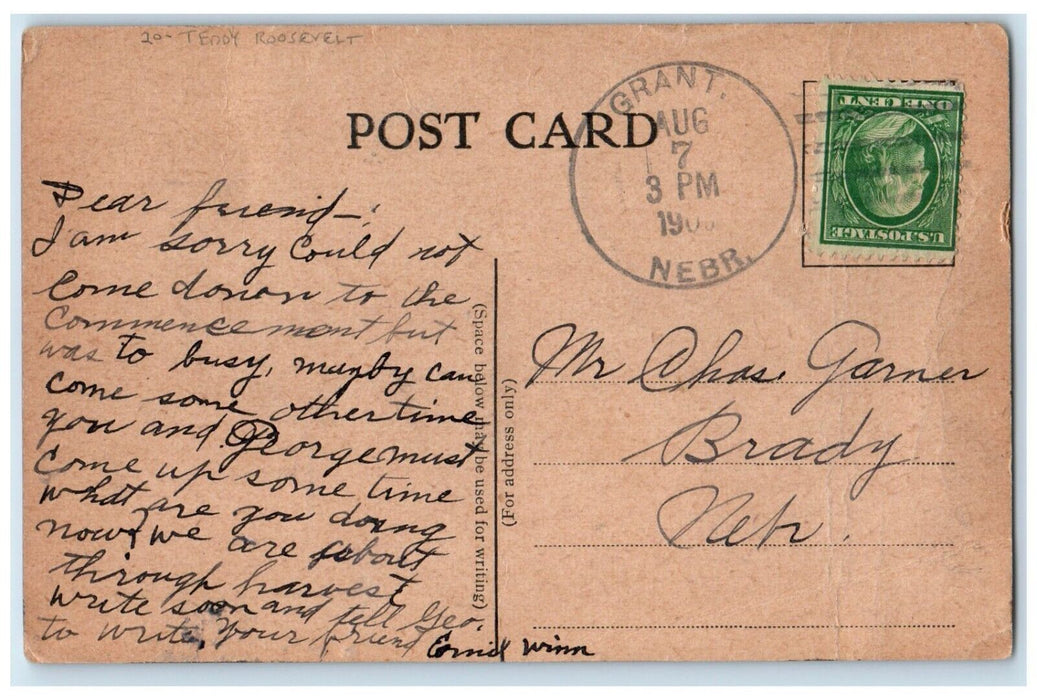 20- TEDDY ROOSEVELT
POST CARD
GRANT.
AUG
7
3 PM
NEBR.
ONE CENT
U.S. POSTAGE
Dear friend-:
I am sorry Could not
Come down to the
Commencement but
was to busy, mayby can
come some other time
you and George must
come up some time
what are you doing
now? we are about
through harvest
write soon and tell Geo.
to write, your friend
Winn
(Space below may be used for writing)
(For address only)
Mr Chas. Garner
Brady
Nebr.